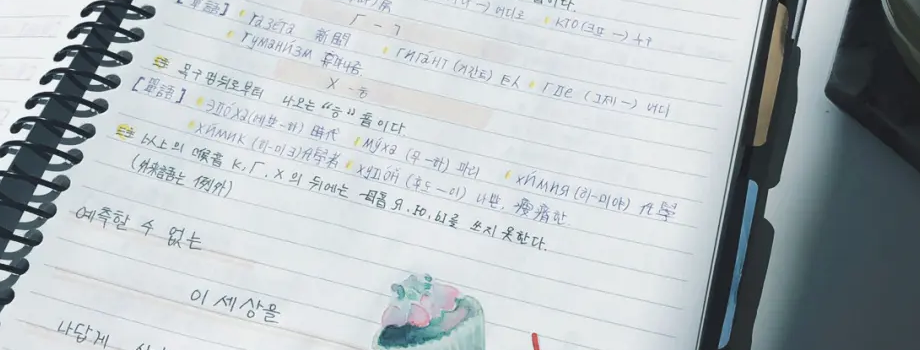 КТО (크또 —) 누구
[單語] газета 新聞
Г - ㄱ
гуманизм
гигант (기간트) 巨人
где (그제 —) 어디
X - ㅎ
목구멍뒤로부터 나오는 "ㅎ" 音이다.
[單語] эпоха (에뽀—하) 時代
муха (무—하) 파리
химик (히—미크) 化學者
худой (후도—이) 나쁜,
химия (히—미야) 化學
以上의 喉音 К, Г, Х의 뒤에는 母音 Я, Ю, Ы를 쓰지 못한다.
(外來語는 例外)
예측할 수 없는
이 세상을
나답게